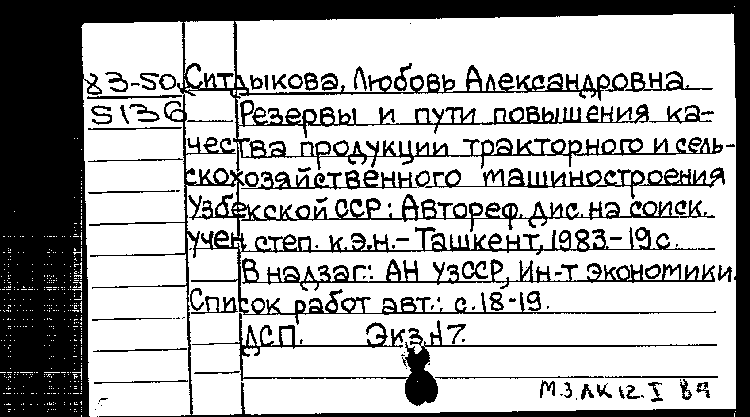 83-50 Ситдыкова, Любовь Александровна.
5136 Резервы и пути повышения ка-
чества продукции тракторного и сель-
скохозяйственного машиностроения
Узбекской ССР: Автореф. дис. на соиск.
учен. степ. к.э.н. - Ташкент, 1983 - 19 с.
В надзаг.: АН УзССР, Ин-т экономики.
Список работ авт.: с. 18-19.
ДСП. Экз. N 7.
М.З. ЛК 12. I 84